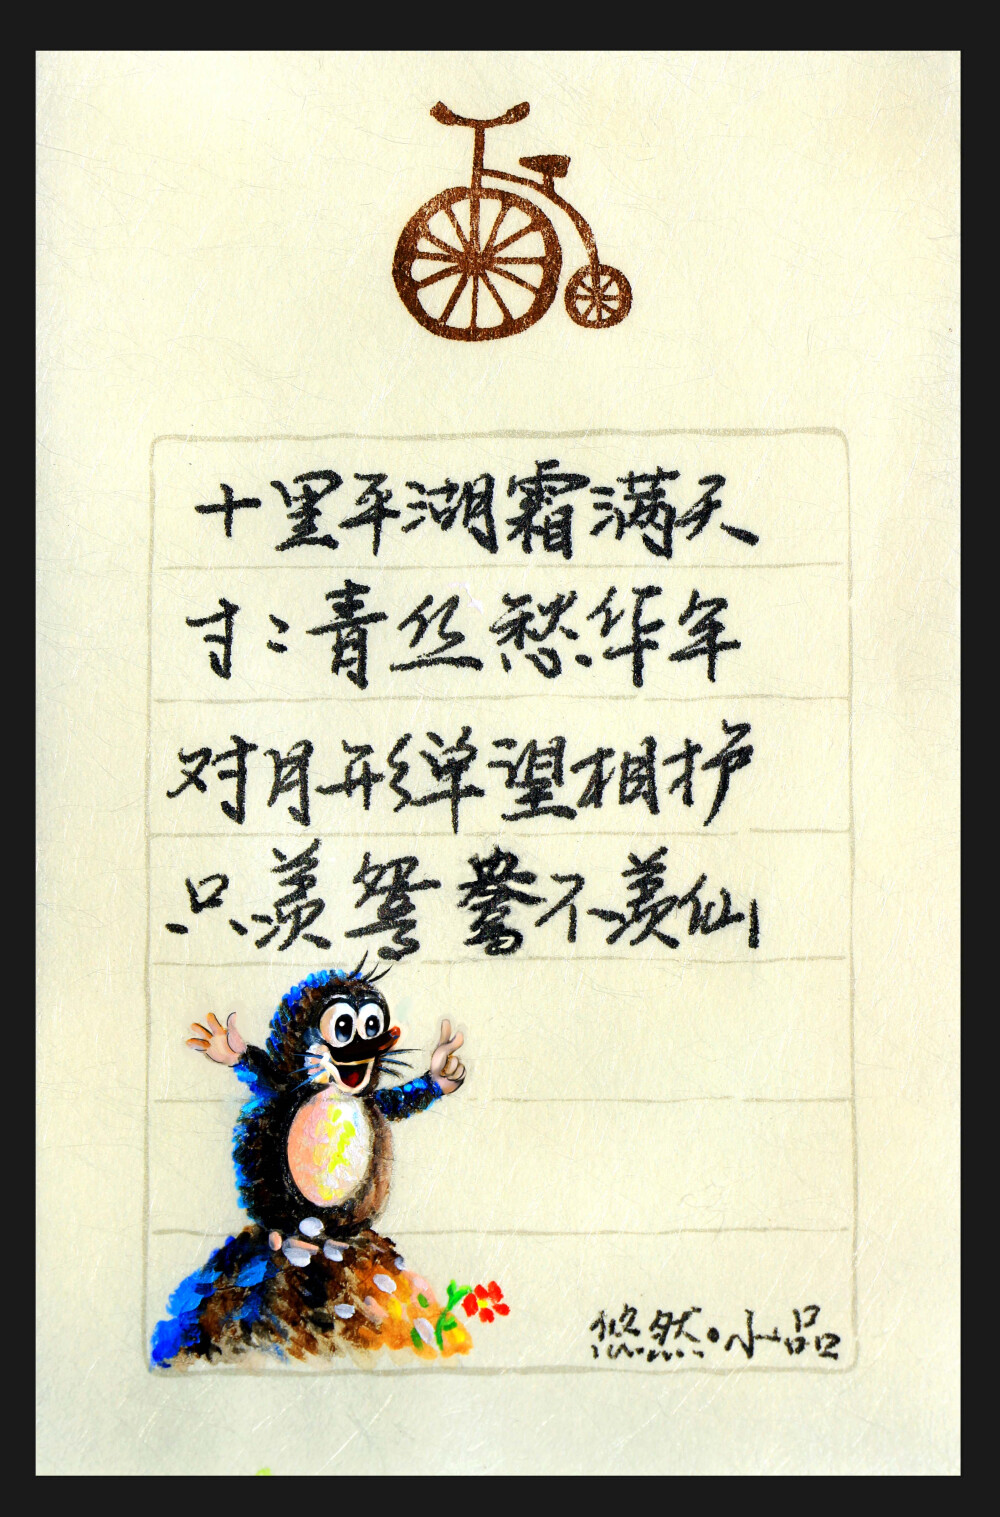 十里平湖霜满天
寸寸青丝愁华年
对月形单望相护
只羡鸳鸯不羡仙
悠然·小品